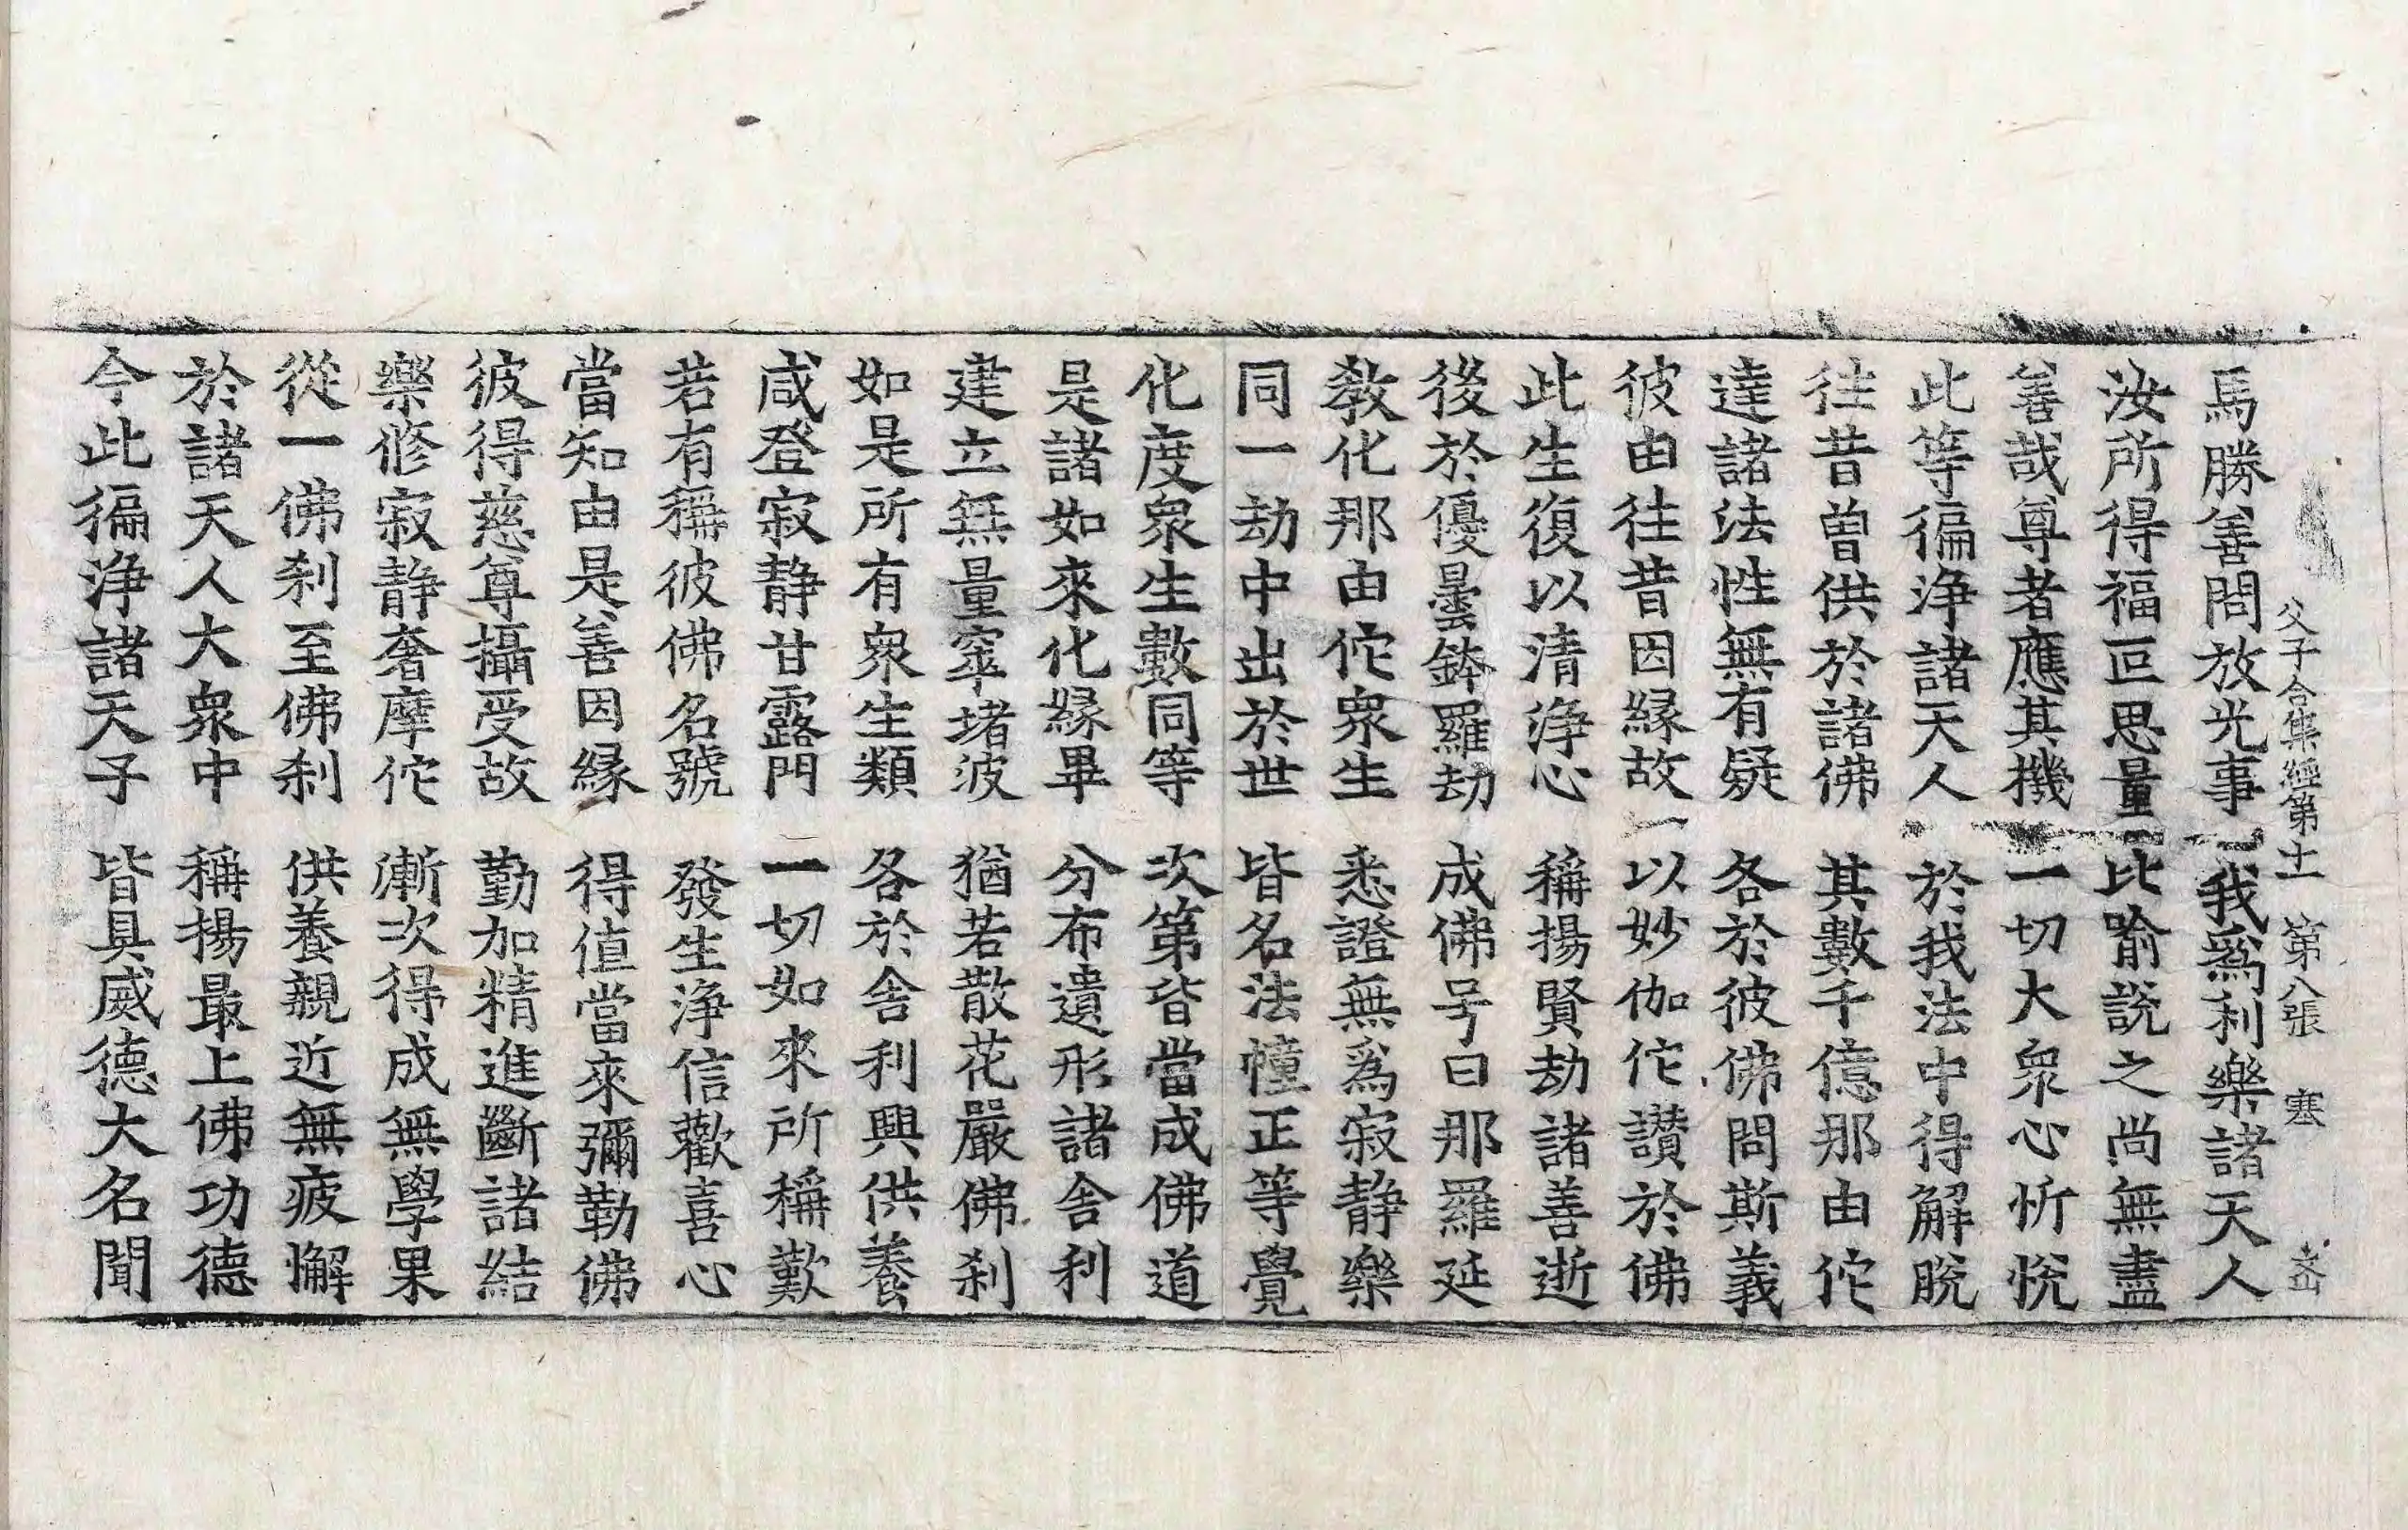 父子合集經第十一 第八張 塞
馬勝善問放光事 我爲利樂諸天人
汝所得福叵思量 比喻說之尚無盡
善哉尊者應其機 一切大衆心忻悅
此等徧淨諸天人 於我法中得解脫
往昔曾供於諸佛 其數千億那由佗
達諸法性無有疑 各於彼佛問斯義
彼由往昔因緣故 以妙伽佗讃於佛
此生復以清淨心 稱揚賢劫諸善逝
後於優曇鉢羅劫 成佛号曰那羅延
敎化那由佗衆生 悉證無爲寂静樂
同一劫中出於世 皆名法幢正等覺
化度衆生數同等 次第皆當成佛道
是諸如來化緣畢 分布遺形諸舎利
建立無量窣堵波 猶若散花嚴佛刹
如是所有衆生類 各於舎利興供養
咸登寂静甘露門 一切如來所稱歎
若有稱彼佛名號 發生淨信歡喜心
當知由是善因緣 得值當來彌勒佛
彼得慈尊攝受故 勤加精進斷諸結
樂修寂静奢摩佗 漸次得成無學果
從一佛刹至佛刹 供養親近無疲懈
於諸天人大衆中 稱揚最上佛功德
今此徧淨諸天子 皆具威德大名聞